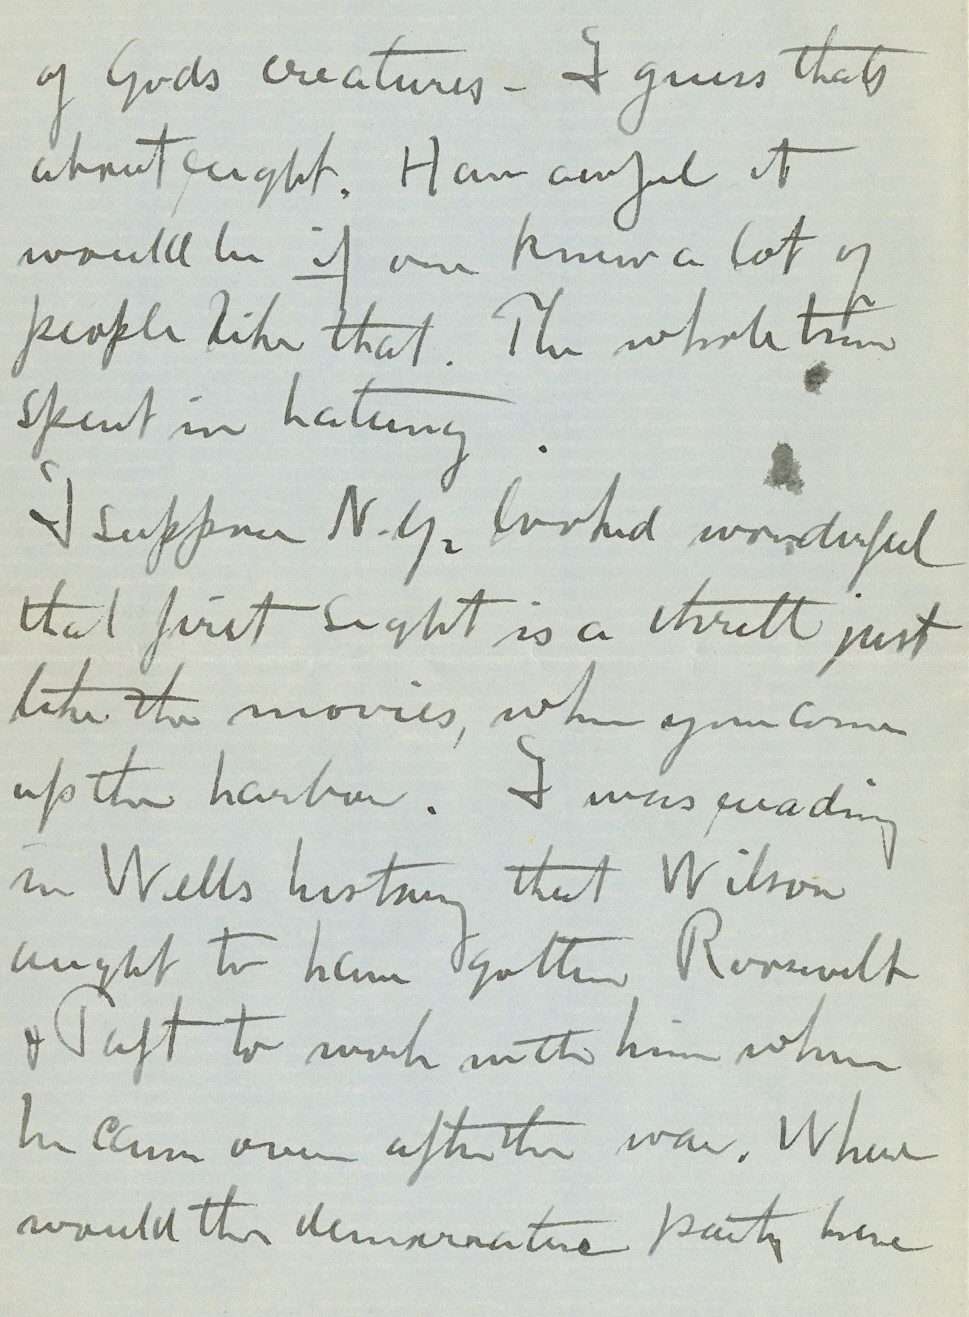 of Gods creatures - I guess thats
about right. How awful it
would be if one knew a lot of
people like that. The whole time
spent in hating.
I suppose N.Y. looked wonderful
that first sight is a thrill just
like the movies, when you come
up the harbour. I was reading
in Wells history that Wilson
ought to have gotten Roosevelt
& Taft to work with him when
he came over after the war. Where
would the democratic party have